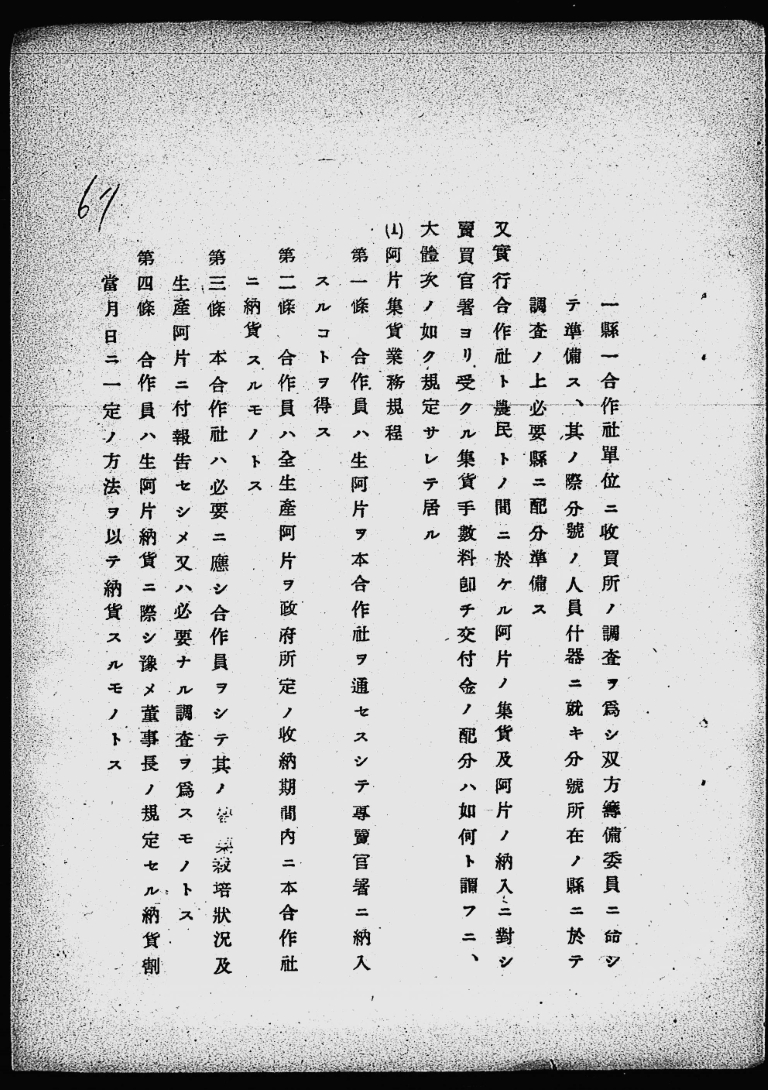 一縣一合作社單位ニ收買所ノ調査ヲ爲シ双方籌備委員ニ命シ
テ準備ス、其ノ際分號ノ人員什器ニ就キ分號所在ノ縣ニ於テ
調査ノ上必要縣ニ配分準備ス
又實行合作社ト農民トノ間ニ於ケル阿片ノ集貨及阿片ノ納入ニ對シ
賣買官署ヨリ受クル集貨手數料卽チ交付金ノ配分ハ如何ト謂フニ、
大體次ノ如ク規定サレテ居ル
(1)阿片集貨業務規程
第一條 合作員ハ生阿片ヲ本合作社ヲ通セスシテ專賣官署ニ納入
スルコトヲ得ス
第二條 合作員ハ全生產阿片ヲ政府所定ノ收納期間內ニ本合作社
ニ納貨スルモノトス
第三條 本合作社ハ必要ニ應シ合作員ヲシテ其ノ栽培狀況及
生產阿片ニ付報告セシメ又ハ必要ナル調査ヲ爲スモノトス
第四條 合作員ハ生阿片納貨ニ際シ豫メ董事長ノ規定セル納貨割
當月日ニ一定ノ方法ヲ以テ納貨スルモノトス